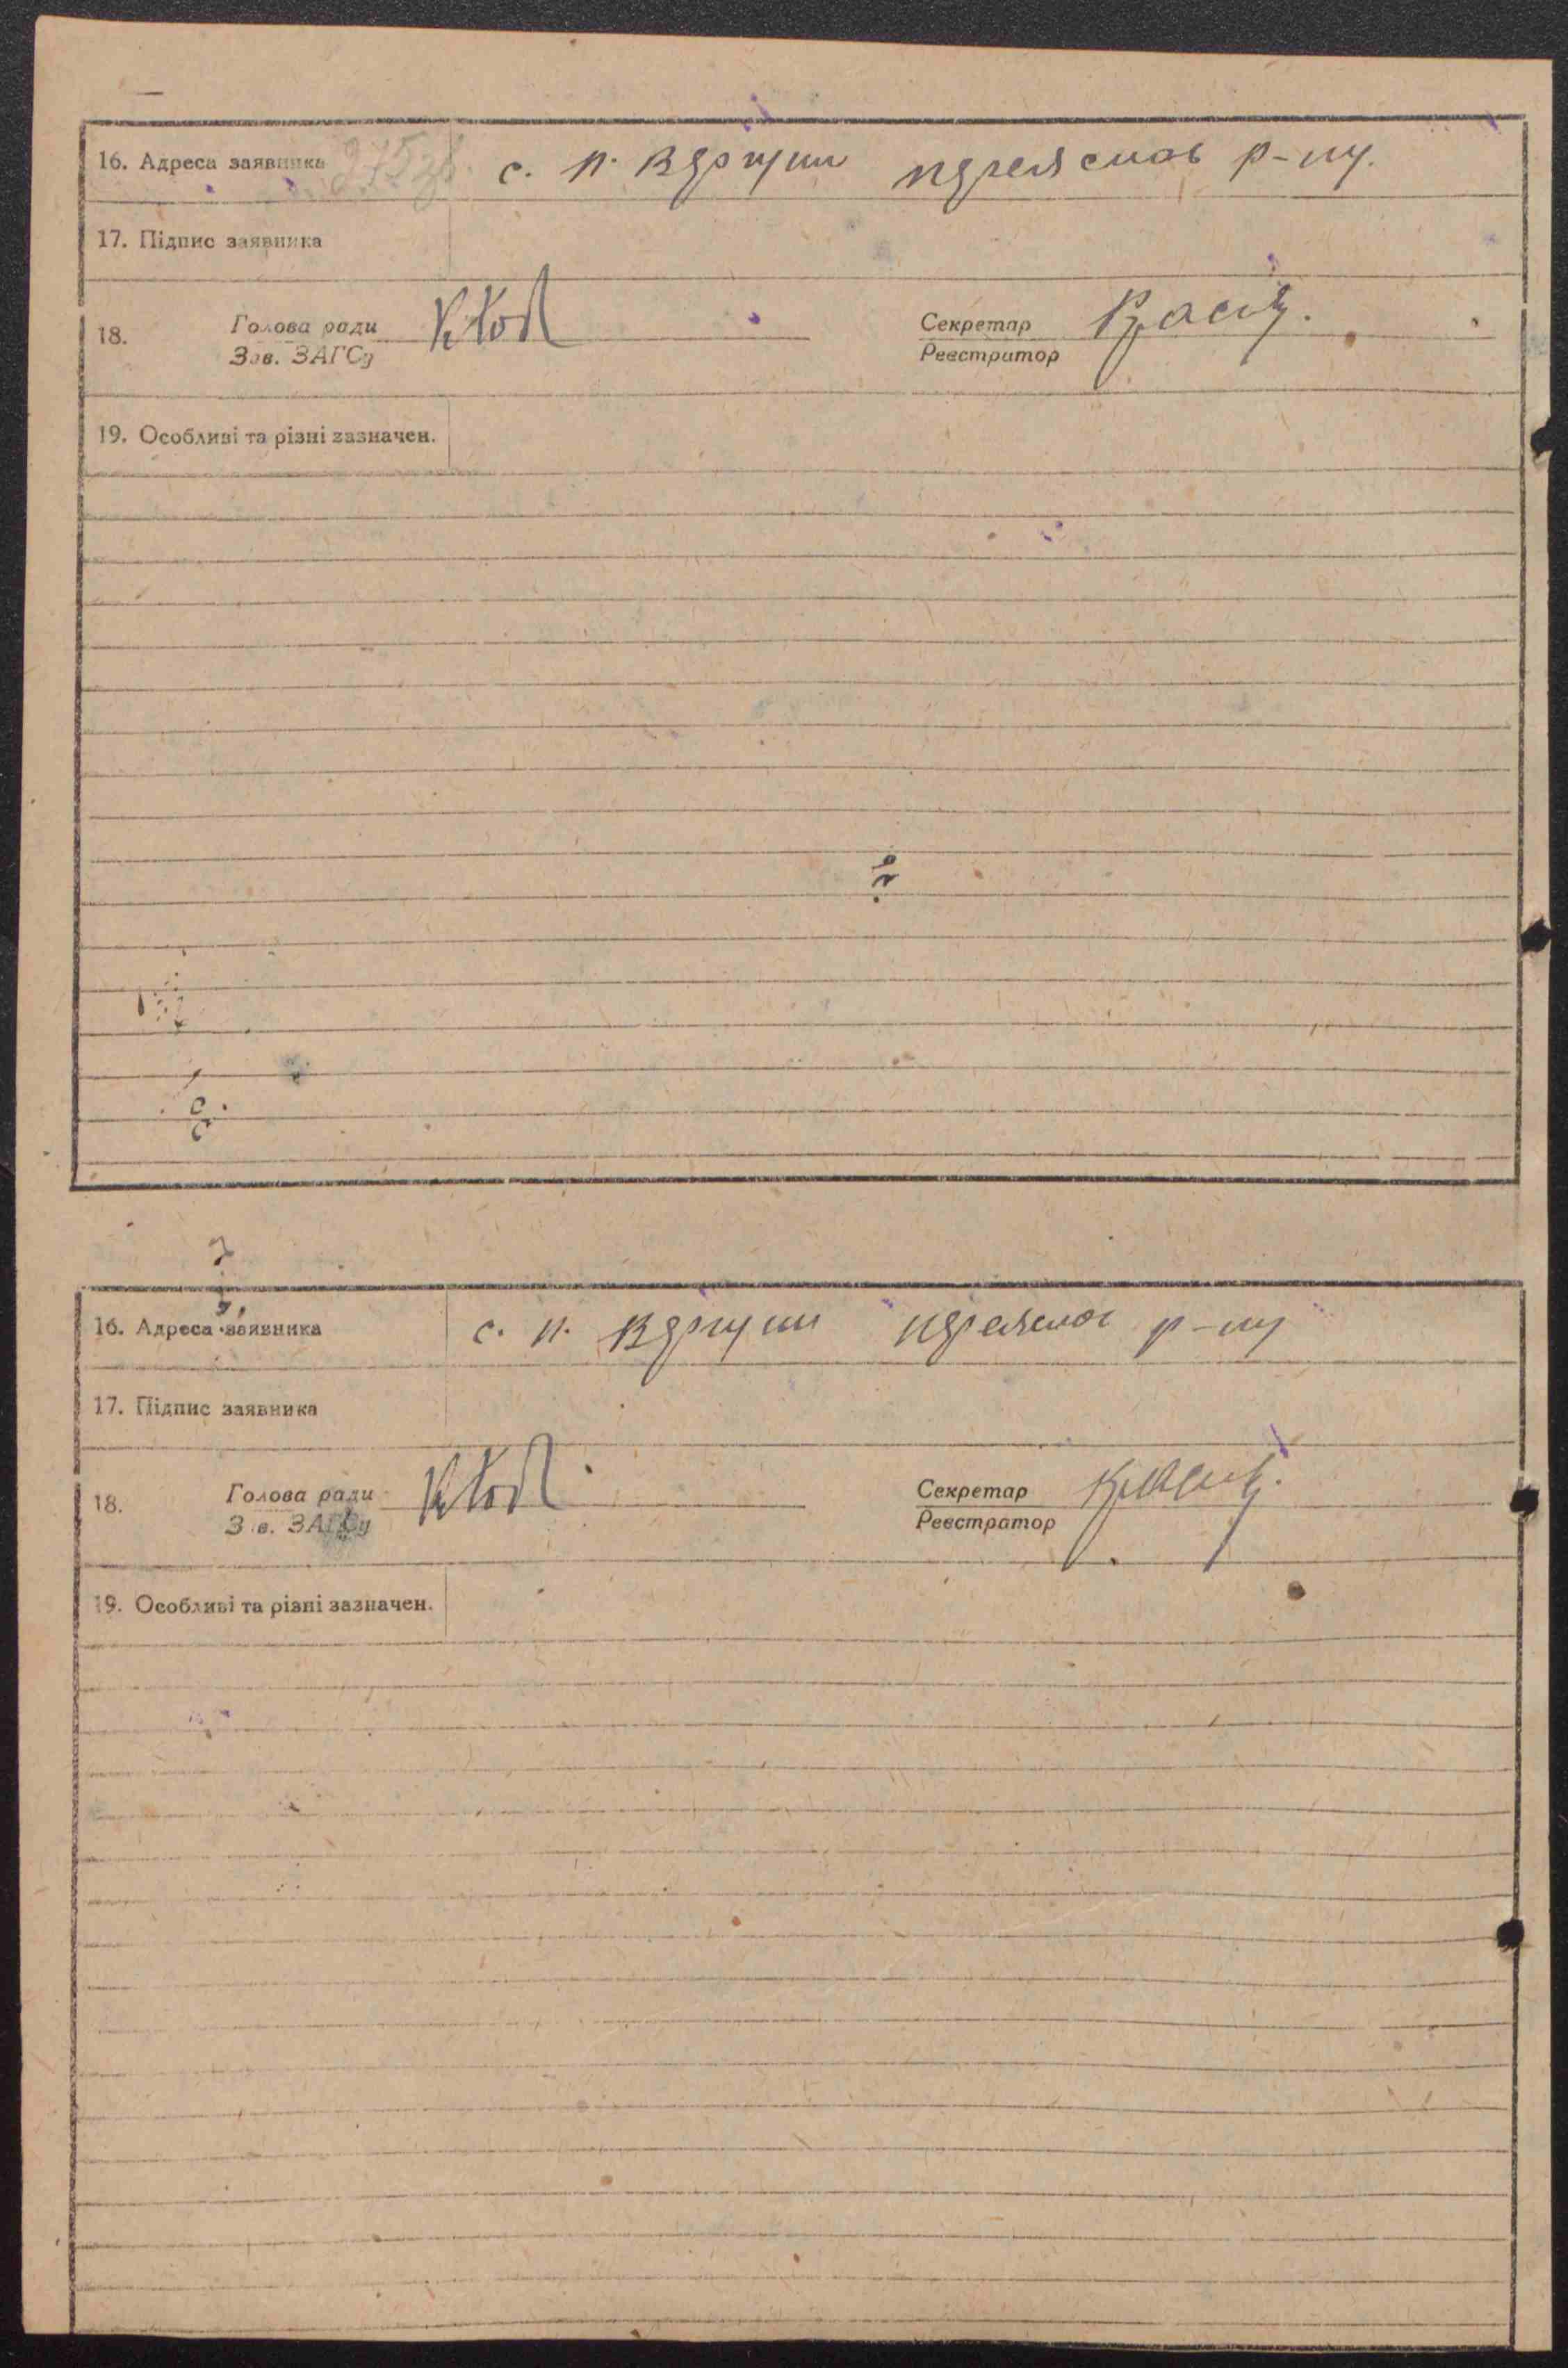 16. Адреса заявника 275 с. п. Вергуни переяслов р-ну.
17. Підпис заявника
18. Голова ради Секретар
Зав. ЗАГСу Реєстратор
19. Особливі та різні зазначен.
16. Адреса заявника с. п. Вергуни р-ну
17. Підпис заявника
18. Голова ради Секретар
Зав. ЗАГСу Реєстратор
19. Особливі та різні зазначен.